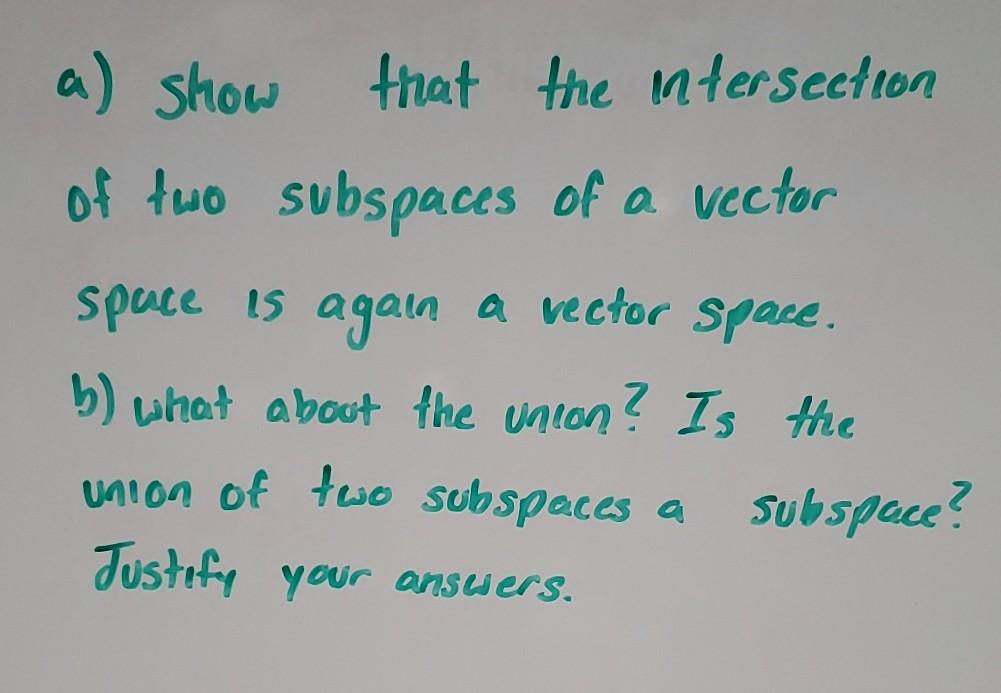 a) show that the intersection
of two subspaces of a vector
space is again a vector space.
b) what about the union? Is the
union of two subspaces a subspace?
Justify your answers.